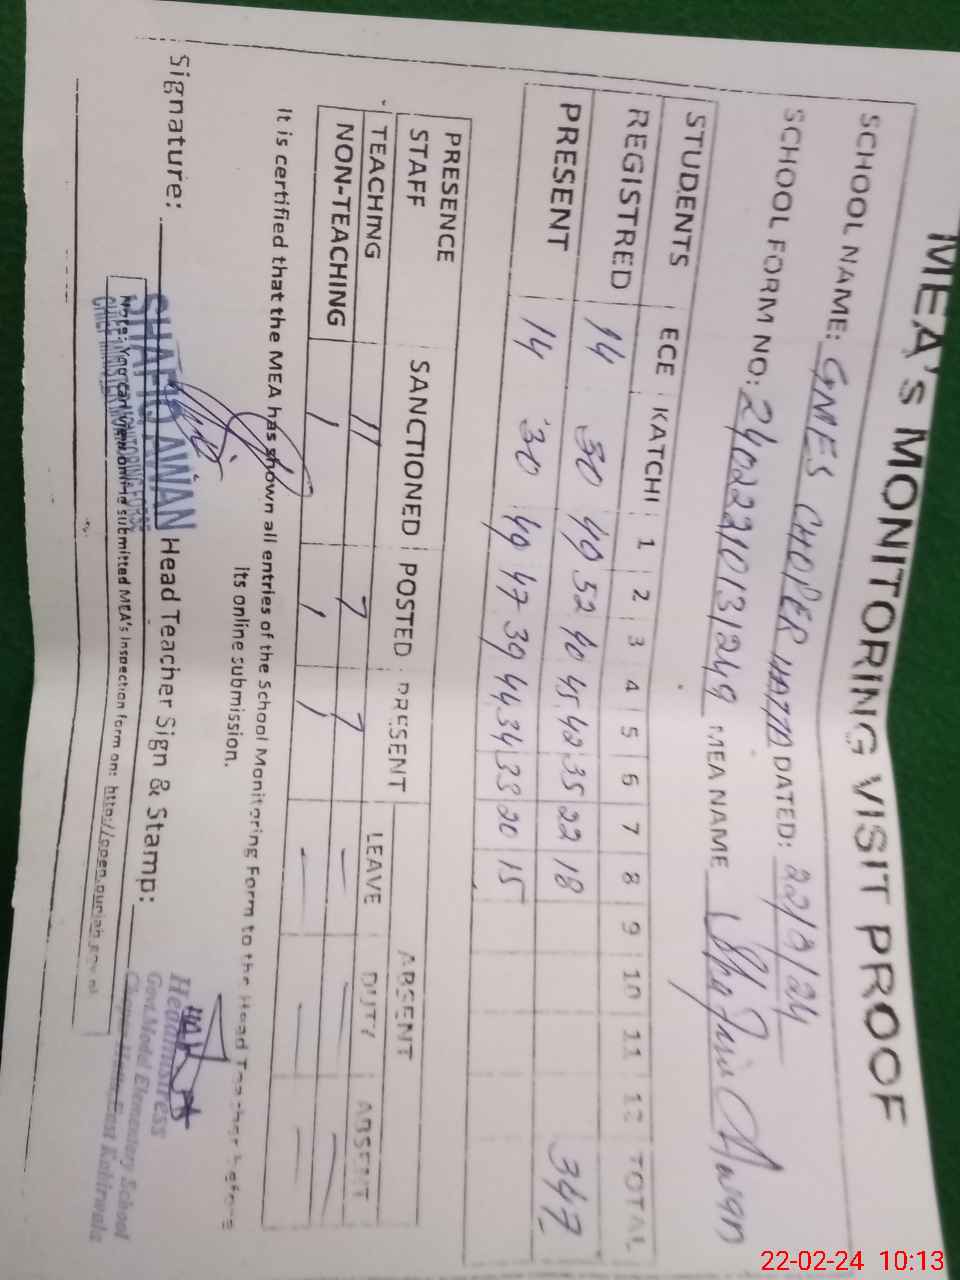 MEA's MONITORING VISIT PROOF
SCHOOL NAME: GMES CHOPER HATTA DATED: 22/2/24
SCHOOL FORM NO: 24022210131249 MEA NAME Shafaiq Awan
STUDENTS ECE KATCHI 1 2 3 4 5 6 7 8 9 10 11 12 TOTAL
REGISTRED 14 30 40 52 40 45 42 35 22 18
PRESENT 14 30 40 47 39 44 34 33 20 15 347
PRESENCE ABSENT
STAFF SANCTIONED POSTED PRESENT LEAVE DUTY ABSENT
TEACHING 11 7 7 — — —
NON-TEACHING 1 1 1 — — —
It is certified that the MEA has shown all entries of the School Monitoring Form to the Head Teacher before
its online submission.
Signature: Head Teacher Sign & Stamp:
SHAFIQ AWAN
CHIEF MINISTER MONITORING FORCE
Headmistress
Govt.Model Elementary School
Chopar Hatta East Kabirwala
Note: You can view online submitted MEA's Inspection form on: http://open.punjab.gov.pk
22-02-24 10:13